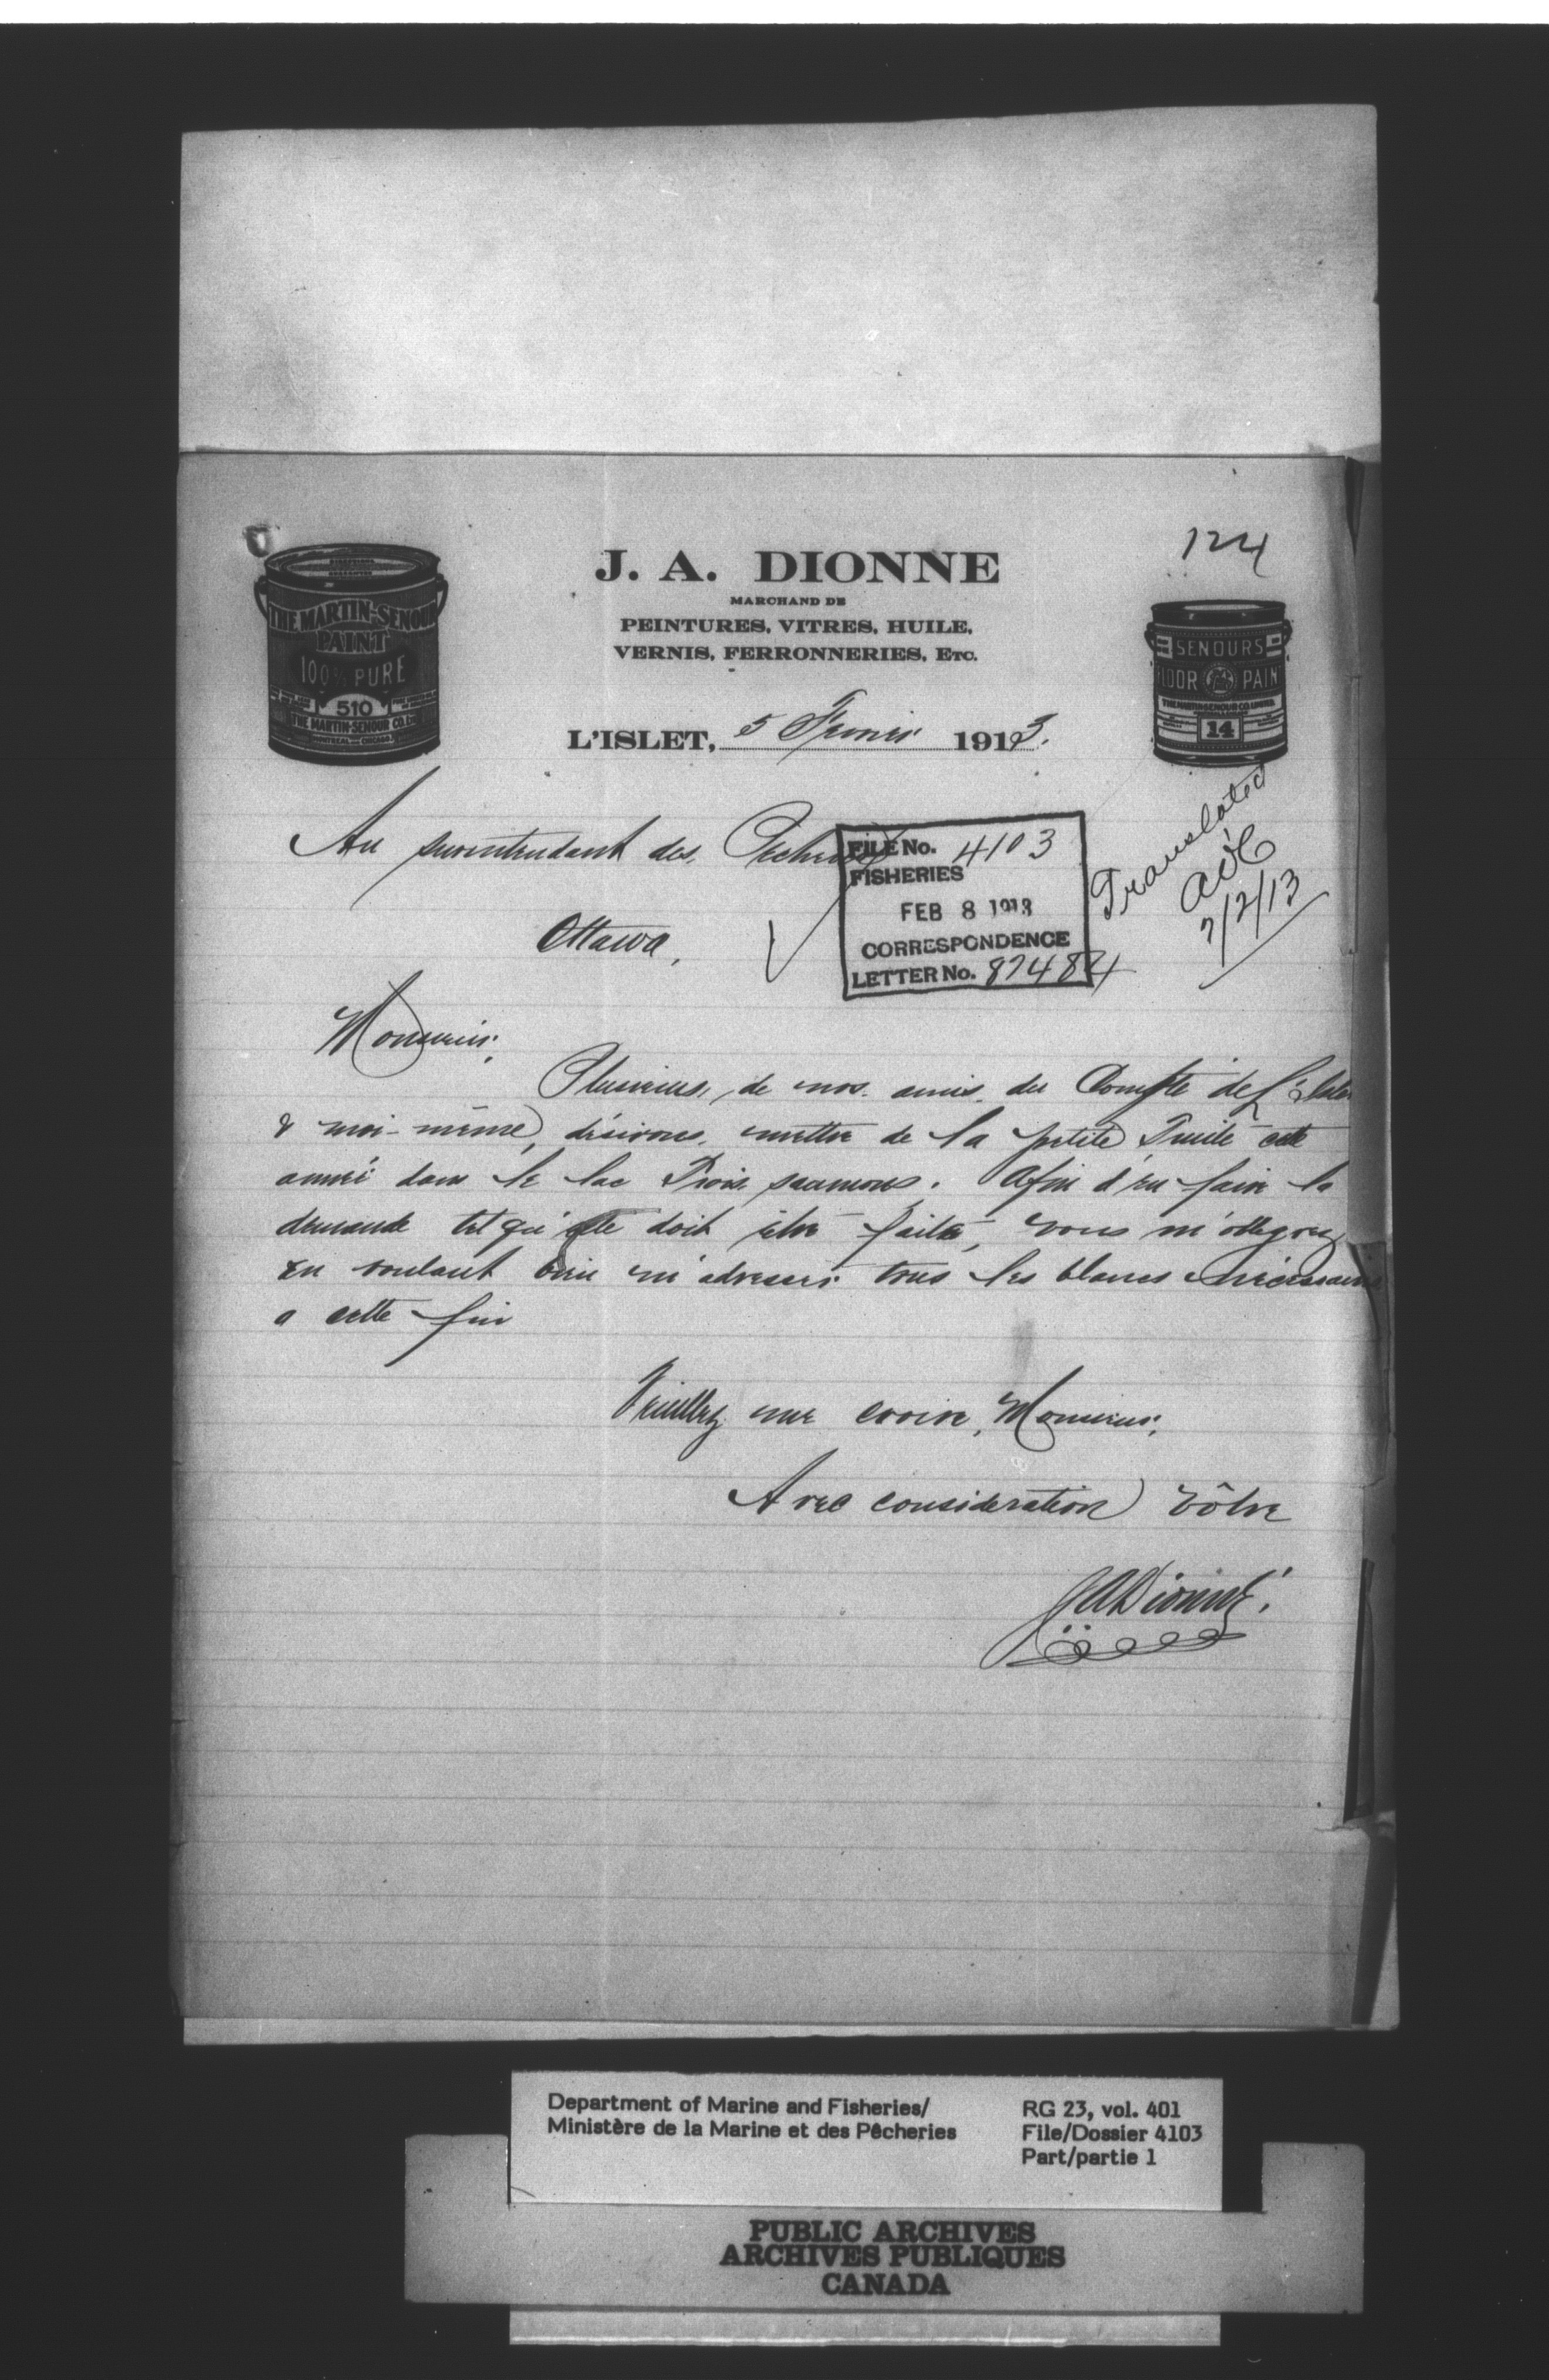 124
J. A. DIONNE
MARCHAND DE
PEINTURES, VITRES, HUILE,
VERNIS, FERRONNERIES, ETC.
THE MARTIN-SENOUR
PAINT
100% PURE
510
THE MARTIN-SENOUR CO. LTD
MONTREAL CHICAGO
SENOURS
FLOOR PAINT
THE MARTIN-SENOUR CO. LIMITED
14
L'ISLET, 5 Fevrier 1913.
Au surintendant des Pecheries
Ottawa,
FILE No. 4103
FISHERIES
FEB 8 1913
CORRESPONDENCE
LETTER No. 87484
Translated
7/2/13
Monsieur,
Plusieurs, de nos amis du Compte de L'Islet
& moi-même, désirons mettre de la petite Truite cette
année dans le lac Trois saumons. Afin d'en faire la
demande tel qu'elle doit être faite, vous m'obligerez
en voulant bien m'adresser tous les blancs nécessaires
a cette fin
Veuillez me croire, Monsieur,
Avec consideration vôtre
JADionne.
Department of Marine and Fisheries/
Ministère de la Marine et des Pêcheries
RG 23, vol. 401
File/Dossier 4103
Part/partie 1
PUBLIC ARCHIVES
ARCHIVES PUBLIQUES
CANADA